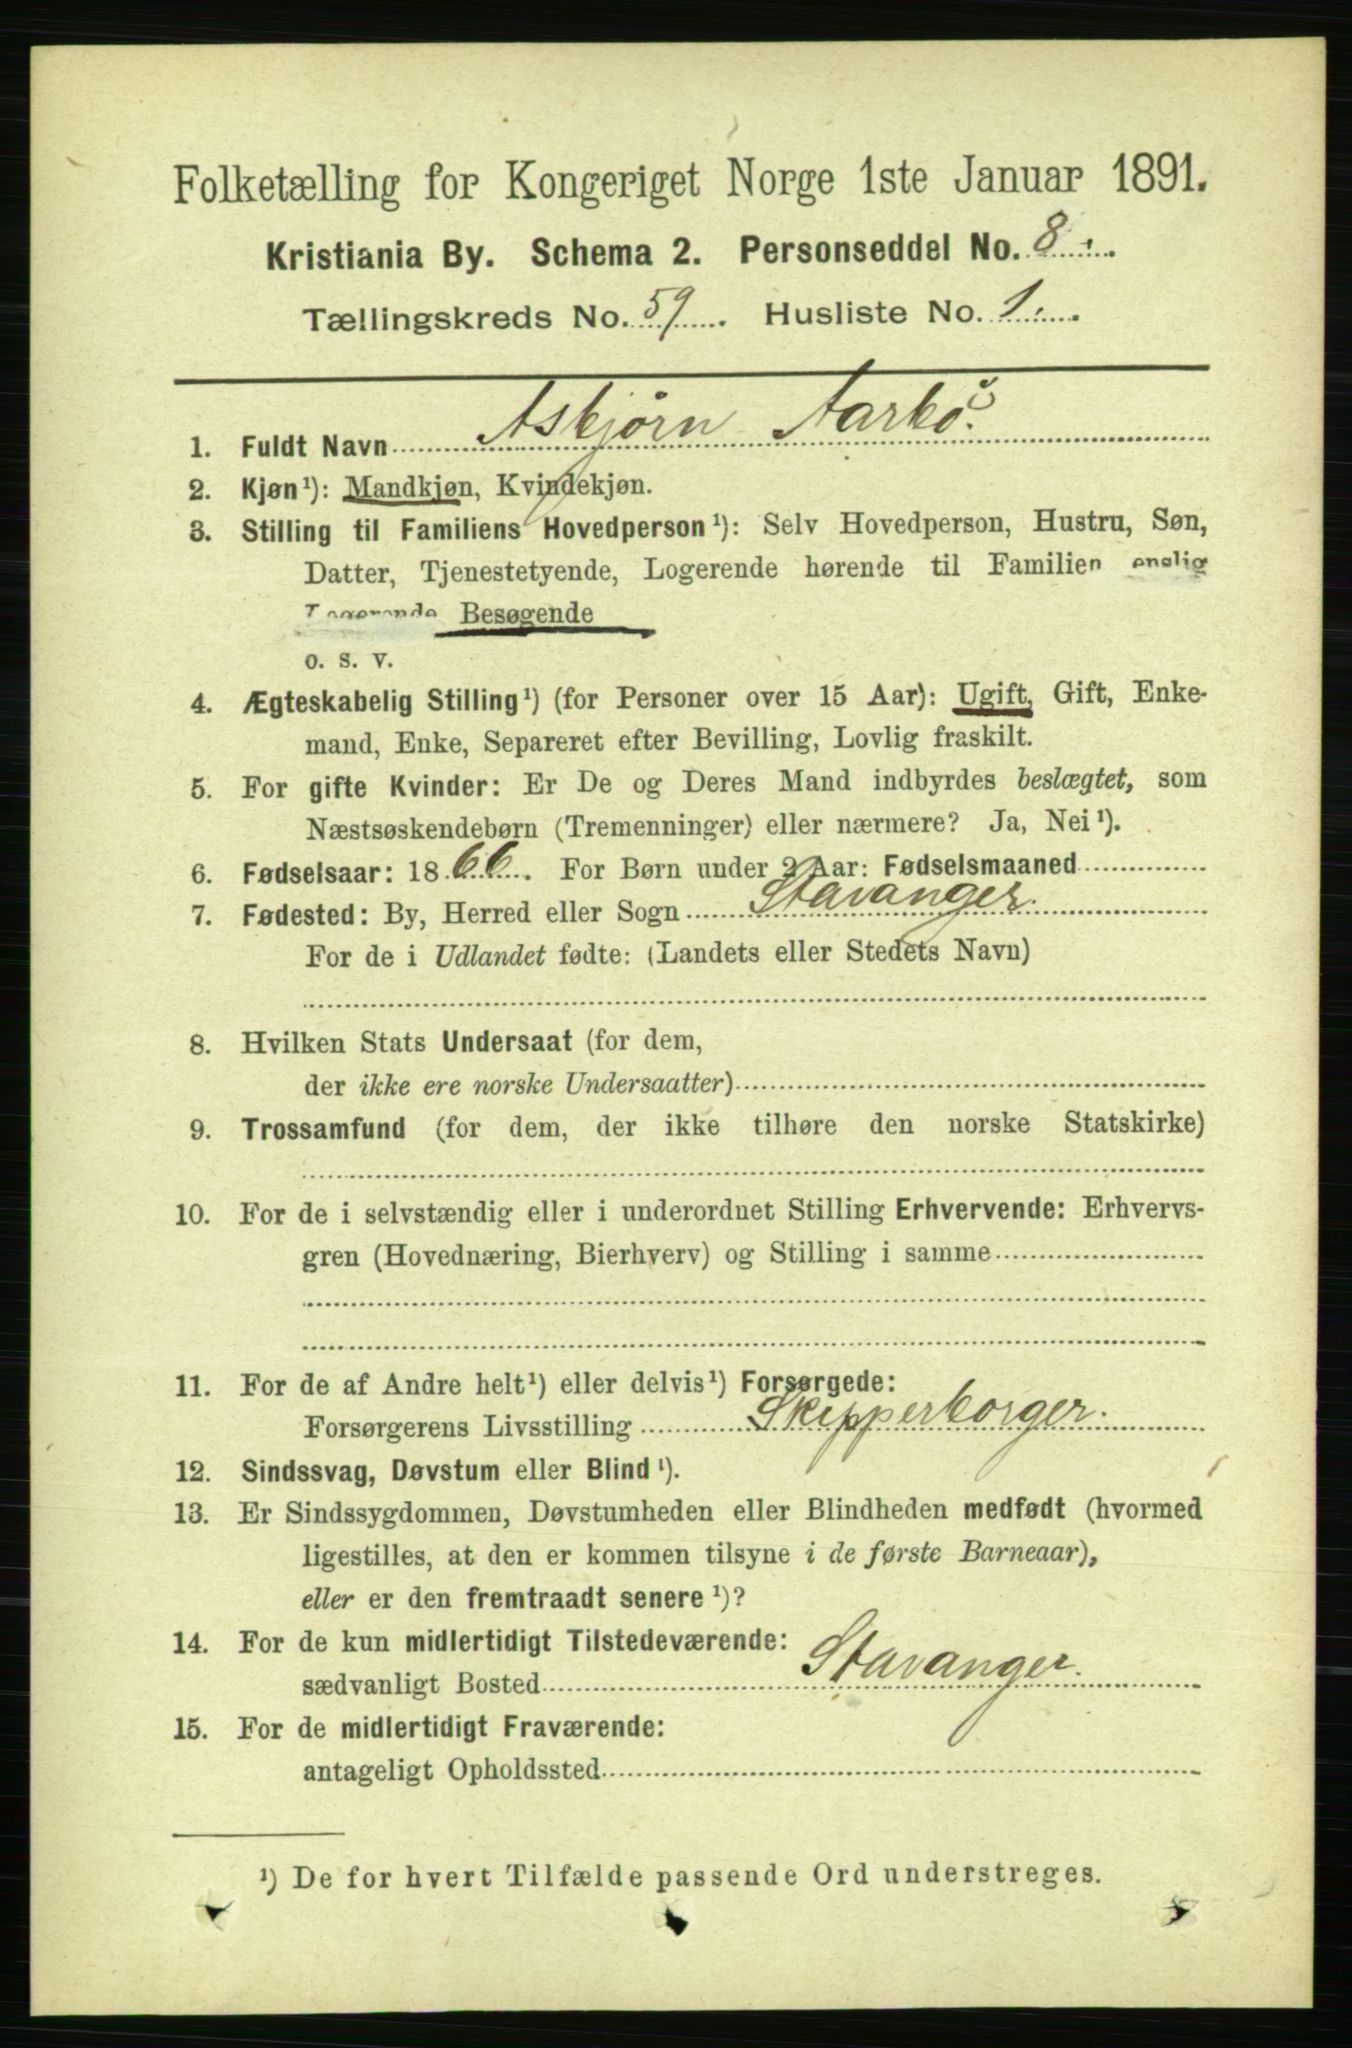 Folketælling for Kongeriget Norge 1ste Januar 1891.
Kristiania By. Schema 2. Personseddel No. 8.
Tællingskreds No. 59. Husliste No. 1.
1. Fuldt Navn Asbjørn
2. Kjøn¹): Mandkjøn, Kvindekjøn.
3. Stilling til Familiens Hovedperson¹): Selv Hovedperson, Hustru, Søn,
Datter, Tjenestetyende, Logerende hørende til Familien enslig
Logerende Besøgende
o. s. v.
4. Ægteskabelig Stilling¹) (for Personer over 15 Aar): Ugift, Gift, Enke-
mand, Enke, Separeret efter Bevilling, Lovlig fraskilt.
5. For gifte Kvinder: Er De og Deres Mand indbyrdes beslægtet, som
Næstsøskendebørn (Tremenninger) eller nærmere? Ja, Nei¹).
6. Fødselsaar: 1866. For Børn under 2 Aar: Fødselsmaaned
7. Fødested: By, Herred eller Sogn Stavanger.
For de i Udlandet fødte: (Landets eller Stedets Navn)
8. Hvilken Stats Undersaat (for dem,
der ikke ere norske Undersaatter)
9. Trossamfund (for dem, der ikke tilhøre den norske Statskirke)
10. For de i selvstændig eller i underordnet Stilling Erhvervende: Erhvervs-
gren (Hovednæring, Bierhverv) og Stilling i samme
11. For de af Andre helt¹) eller delvis¹) Forsørgede:
Forsørgerens Livsstilling Skipperborger.
12. Sindssvag, Døvstum eller Blind¹).
13. Er Sindssygdommen, Døvstumheden eller Blindheden medfødt (hvormed
ligestilles, at den er kommen tilsyne i de første Barneaar),
eller er den fremtraadt senere¹)?
14. For de kun midlertidigt Tilstedeværende:
sædvanligt Bosted Stavanger.
15. For de midlertidigt Fraværende:
antageligt Opholdssted
¹) De for hvert Tilfælde passende Ord understreges.